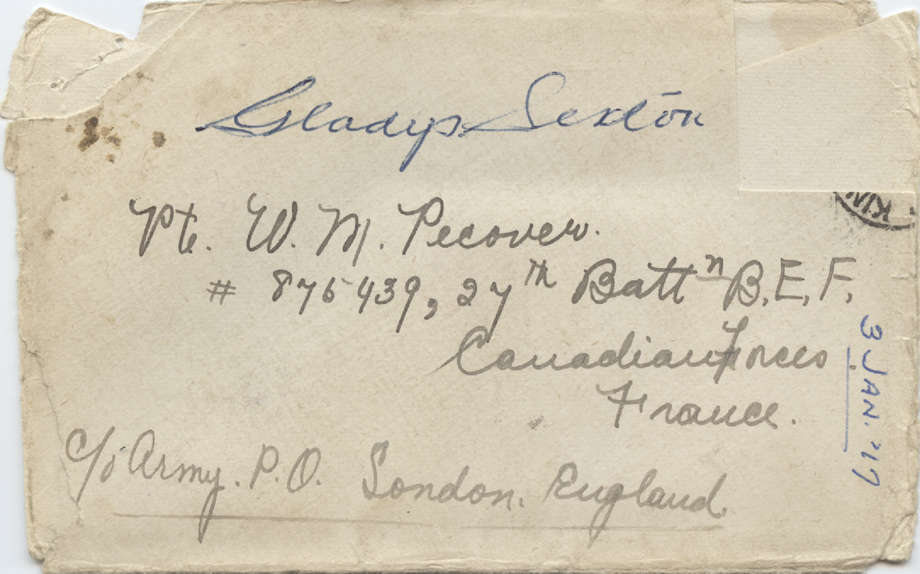 Gladys Sexton
Pte. W. M. Pecover.
# 875439, 27th Battn B.E.F.
Canadian Forces
France.
c/o Army. P.O. London. England.
3 JAN. '17
KIN